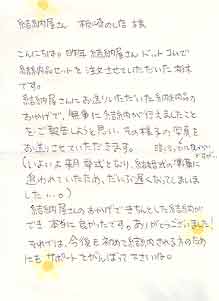 結納屋さん
こんにちは。昨年結納屋ドットコムで
結納品セットを注文させていただいた
です。
結納屋さんにお送りいただいた結納品の
おかげで、無事に結納が行えましたこと
をご報告しようと思い、その様子の写真を
お送りさせていただきます。
(いよいよ来月挙式となり、結婚式の準備に
追われていたため、だいぶ遅くなってしまいま
した…。)
結納屋さんのおかげできちんとした結納が
でき本当に良かったです。ありがとうございました!
それでは、今後も初めて結納される方のため
にもサポートをがんばって下さいね。